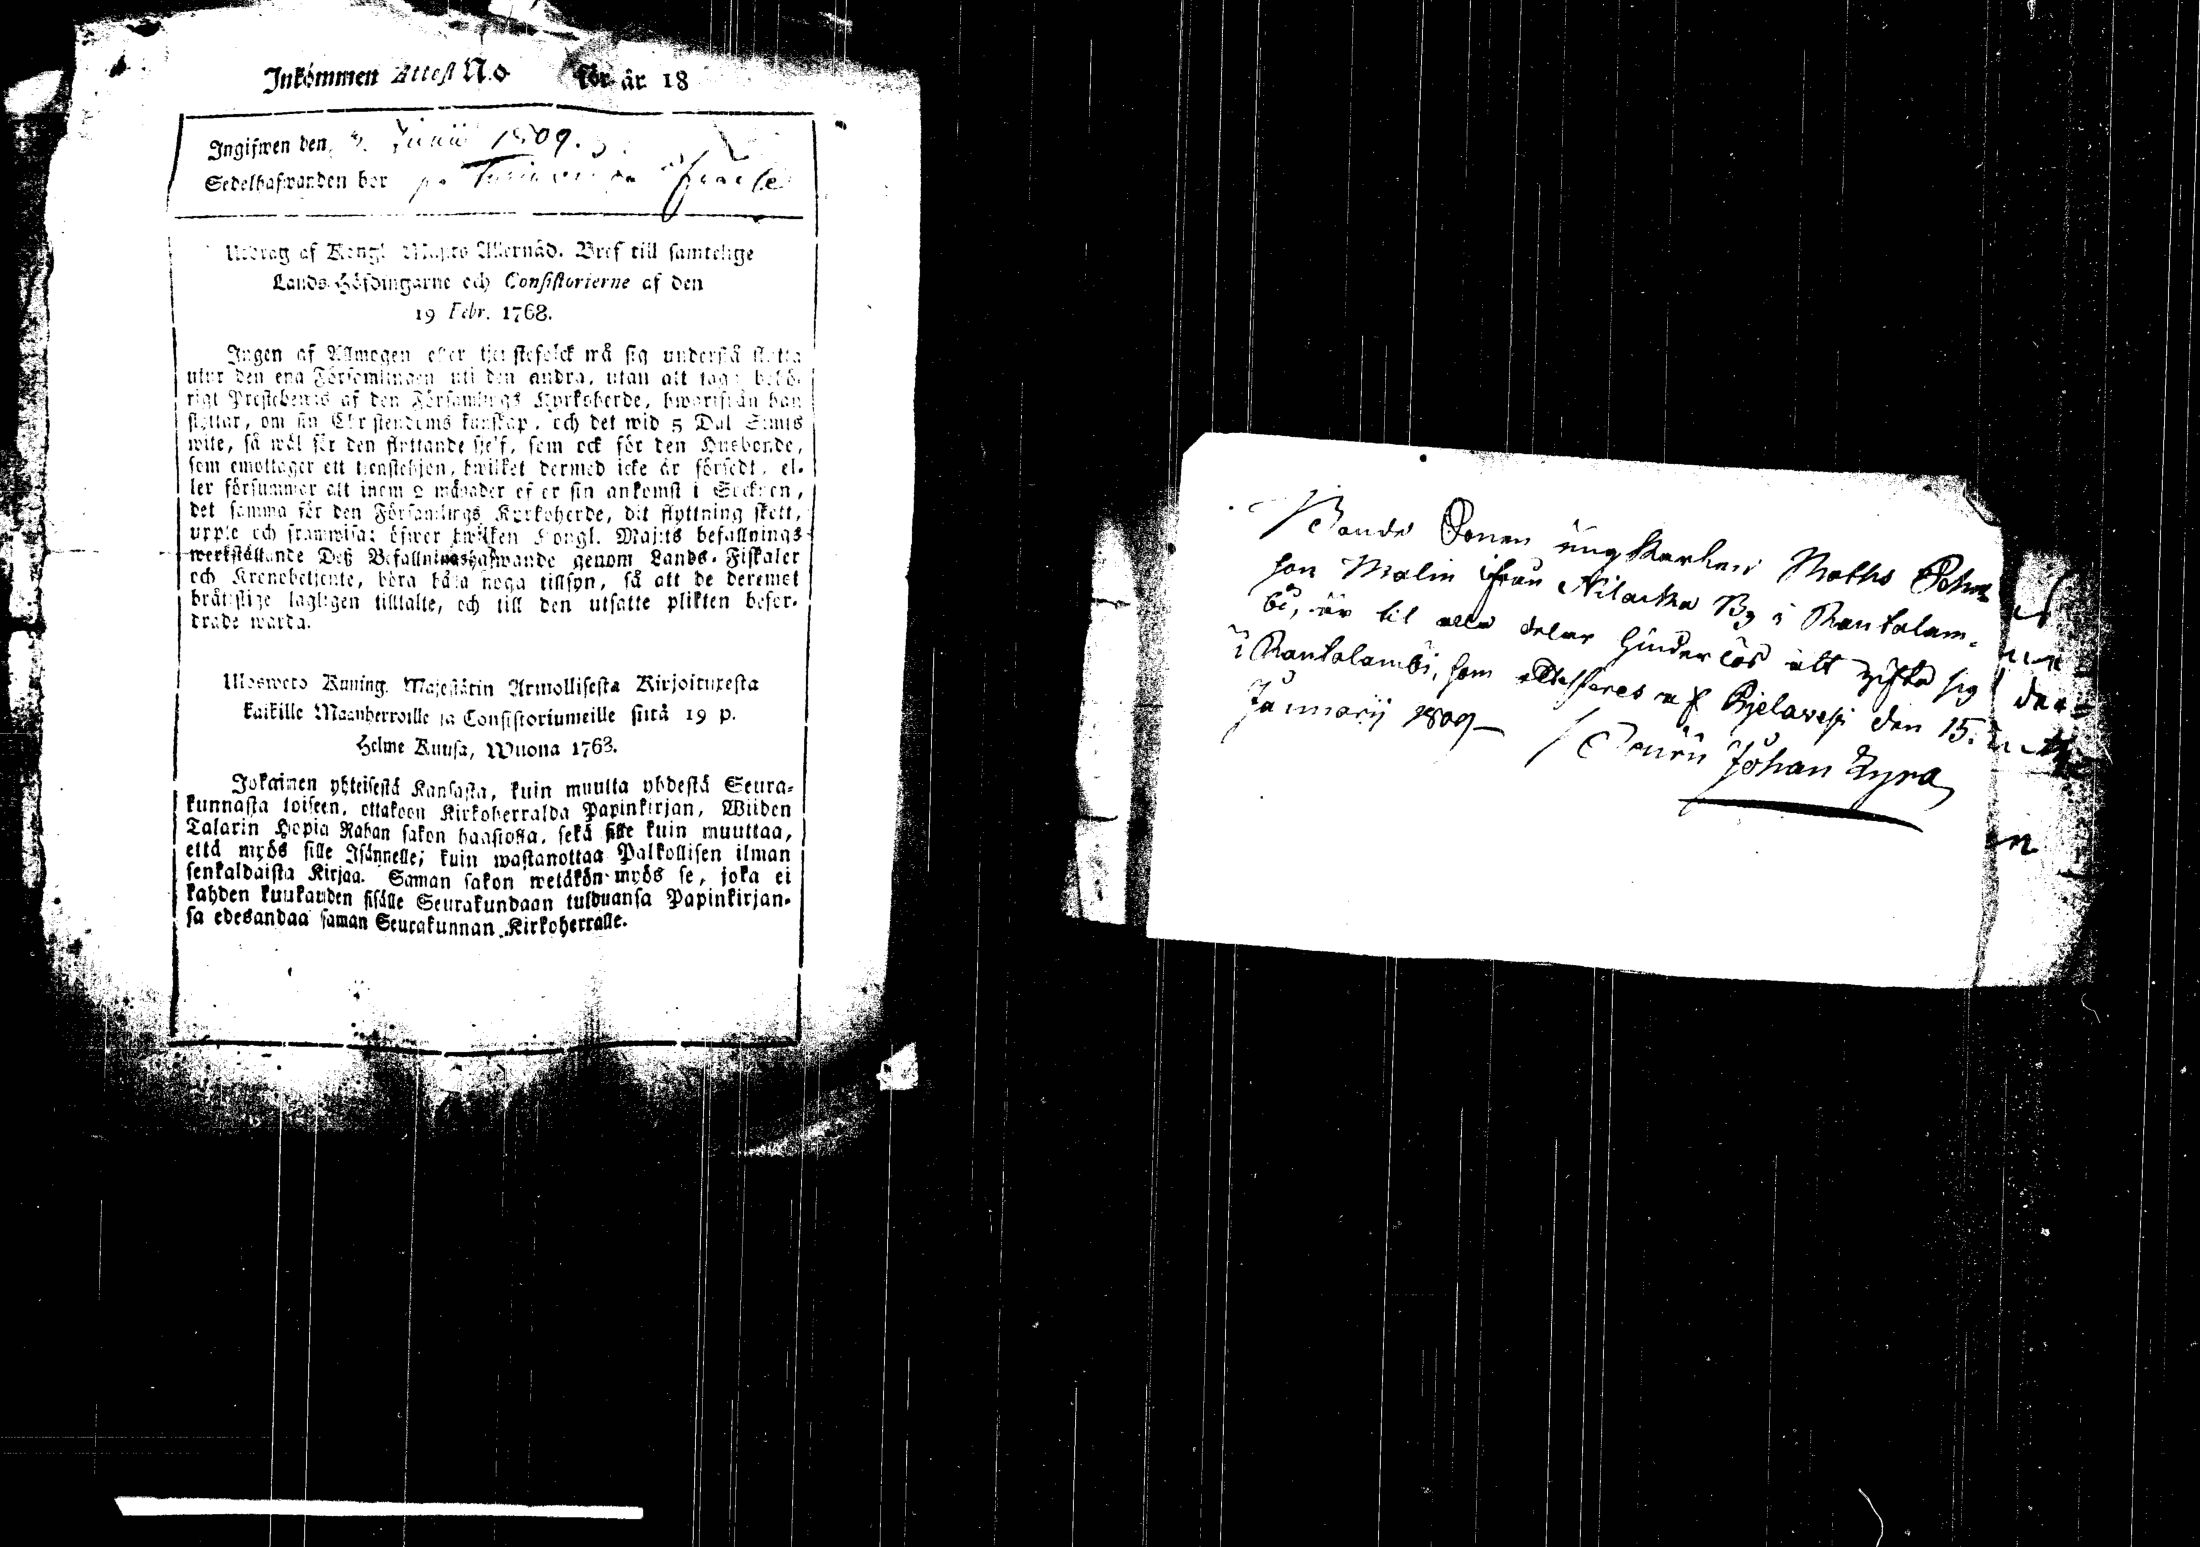 Inkommen Attest No för år 18
Ingifwen den 3. Junii 1809.
Sedelhafwanden bor på
Utdrag af Kongl. Maj:ts Allernåd. Bref till samtelige
Lands-Höfdingarne och Consistorierne af den
19 Febr. 1768.
Ingen af Allmogen eller tjenstefolck må sig understå flytta
utur den ena Församlingen uti den andra, utan att taga behö-
rigt Prestebewis af den Församlings Kyrkoherde, hwarifrån han
flyttar, om sin Christendoms kunskap, och det wid 5 Dal. S:mts
wite, så wäl för den flyttande sjelf, som ock för den Husbonde,
som emottager ett tjenstehjon, hwilket dermed icke är försedt, el-
ler försummar att inom 2 månader efter sin ankomst i Socknen,
det samma för den Församlings Kyrkoherde, dit flyttning skett,
uppte och framwisa: öfwer hwilken Kongl. Maj:ts befallnings
werkställande Deß Befallningshafwande genom Lands-Fiskaler
och Kronobetjente, böra håla noga tillsyn, så att de deremot
bråtslige lagligen tilltalte, och till den utsatte plikten befor-
drade warda.
Ulosweto Kuning. Majestätin Armollisesta Kirjoituxesta
kaikille Maanherroille ja Consistoriumeille siitä 19 p.
Helme Kuusa, Wuona 1768.
Jokainen yhteisestä Kansasta, kuin muutta yhdestä Seura-
kunnasta toiseen, ottakoon Kirkoherralda Papinkirjan, Wiiden
Talarin Hopia Rahan sakon haastolla, sekä sille kuin muuttaa,
että myös sille Isännelle; kuin wastanottaa Palkollisen ilman
senkaldaista Kirjaa. Saman sakon wetäkön myös se, joka ei
kahden kuukauden sisälle Seurakundaan tulduansa Papinkirjan-
sa edesandaa saman Seurakunnan Kirkoherralle.
Bonde Sonen ung Karlen Maths Johan
son Malin ifrån Nilacka By i Rautalam-
bi, är til alla delar hinderlös att gifta sig
i Rautalambi, som attesteres af Pjelavesi den 15.
Januarij 1809
Johan Zyra